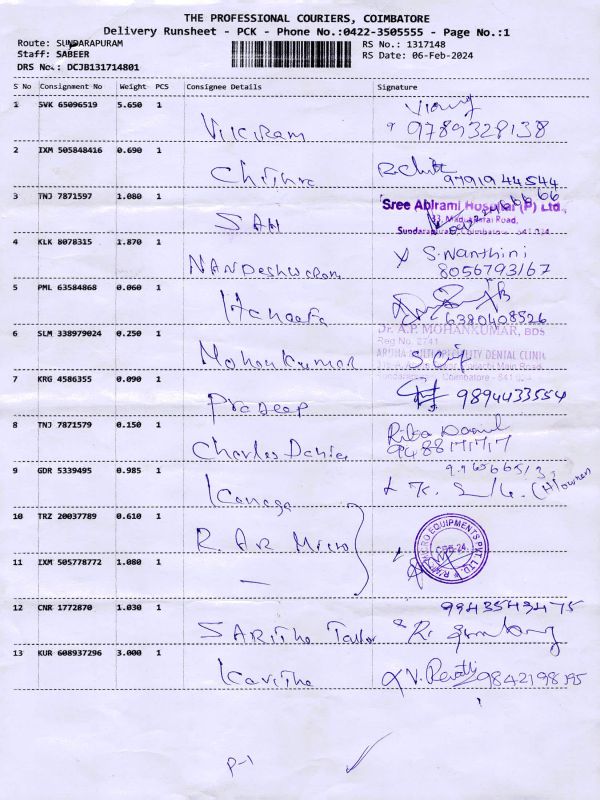 THE PROFESSIONAL COURIERS, COIMBATORE
Delivery Runsheet - PCK - Phone No.:0422-3505555 - Page No.:1
Route: SUNDARAPURAM
RS No.: 1317148
Staff: SABEER
RS Date: 06-Feb-2024
DRS No.: DCJB131714801
S No Consignment No Weight PCS Consignee Details Signature
1 SVK 65096519 5.650 1
Vikram 9789328138
2 IXM 505848416 0.690 1
Chithra 9791944544
3 TNJ 7871597 1.080 1
SAH
Sree Abirami Hospital (P) Ltd.,
33, Madukkarai Road,
Sundarapuram, Coimbatore - 641 024
4 KLK 8078315 1.870 1
NANDeshwaram S. Nanthini
8056793167
5 PML 63584868 0.060 1
6380408526
6 SLM 338979024 0.250 1
Mohan Kumar
Dr. A.P. MOHANKUMAR, BDS
Reg No. 2741
MULTI SPECIALITY DENTAL CLINIC
Pollachi Main Road
Coimbatore - 641
7 KRG 4586355 0.090 1
Pradeep 9894433554
8 TNJ 7871579 0.150 1
Charles Daniel
9488171717
9 GDR 5339495 0.985 1
Kanaga
10 TRZ 20037789 0.610 1
R. AR Micro
MICRO EQUIPMENTS PVT. LTD
CBE-24
11 IXM 505778772 1.080 1
12 CNR 1772870 1.030 1
9943543475
SARItha Tailor
13 KUR 608937296 3.000 1
Kavitha V. Revathi 9842198195
P-1